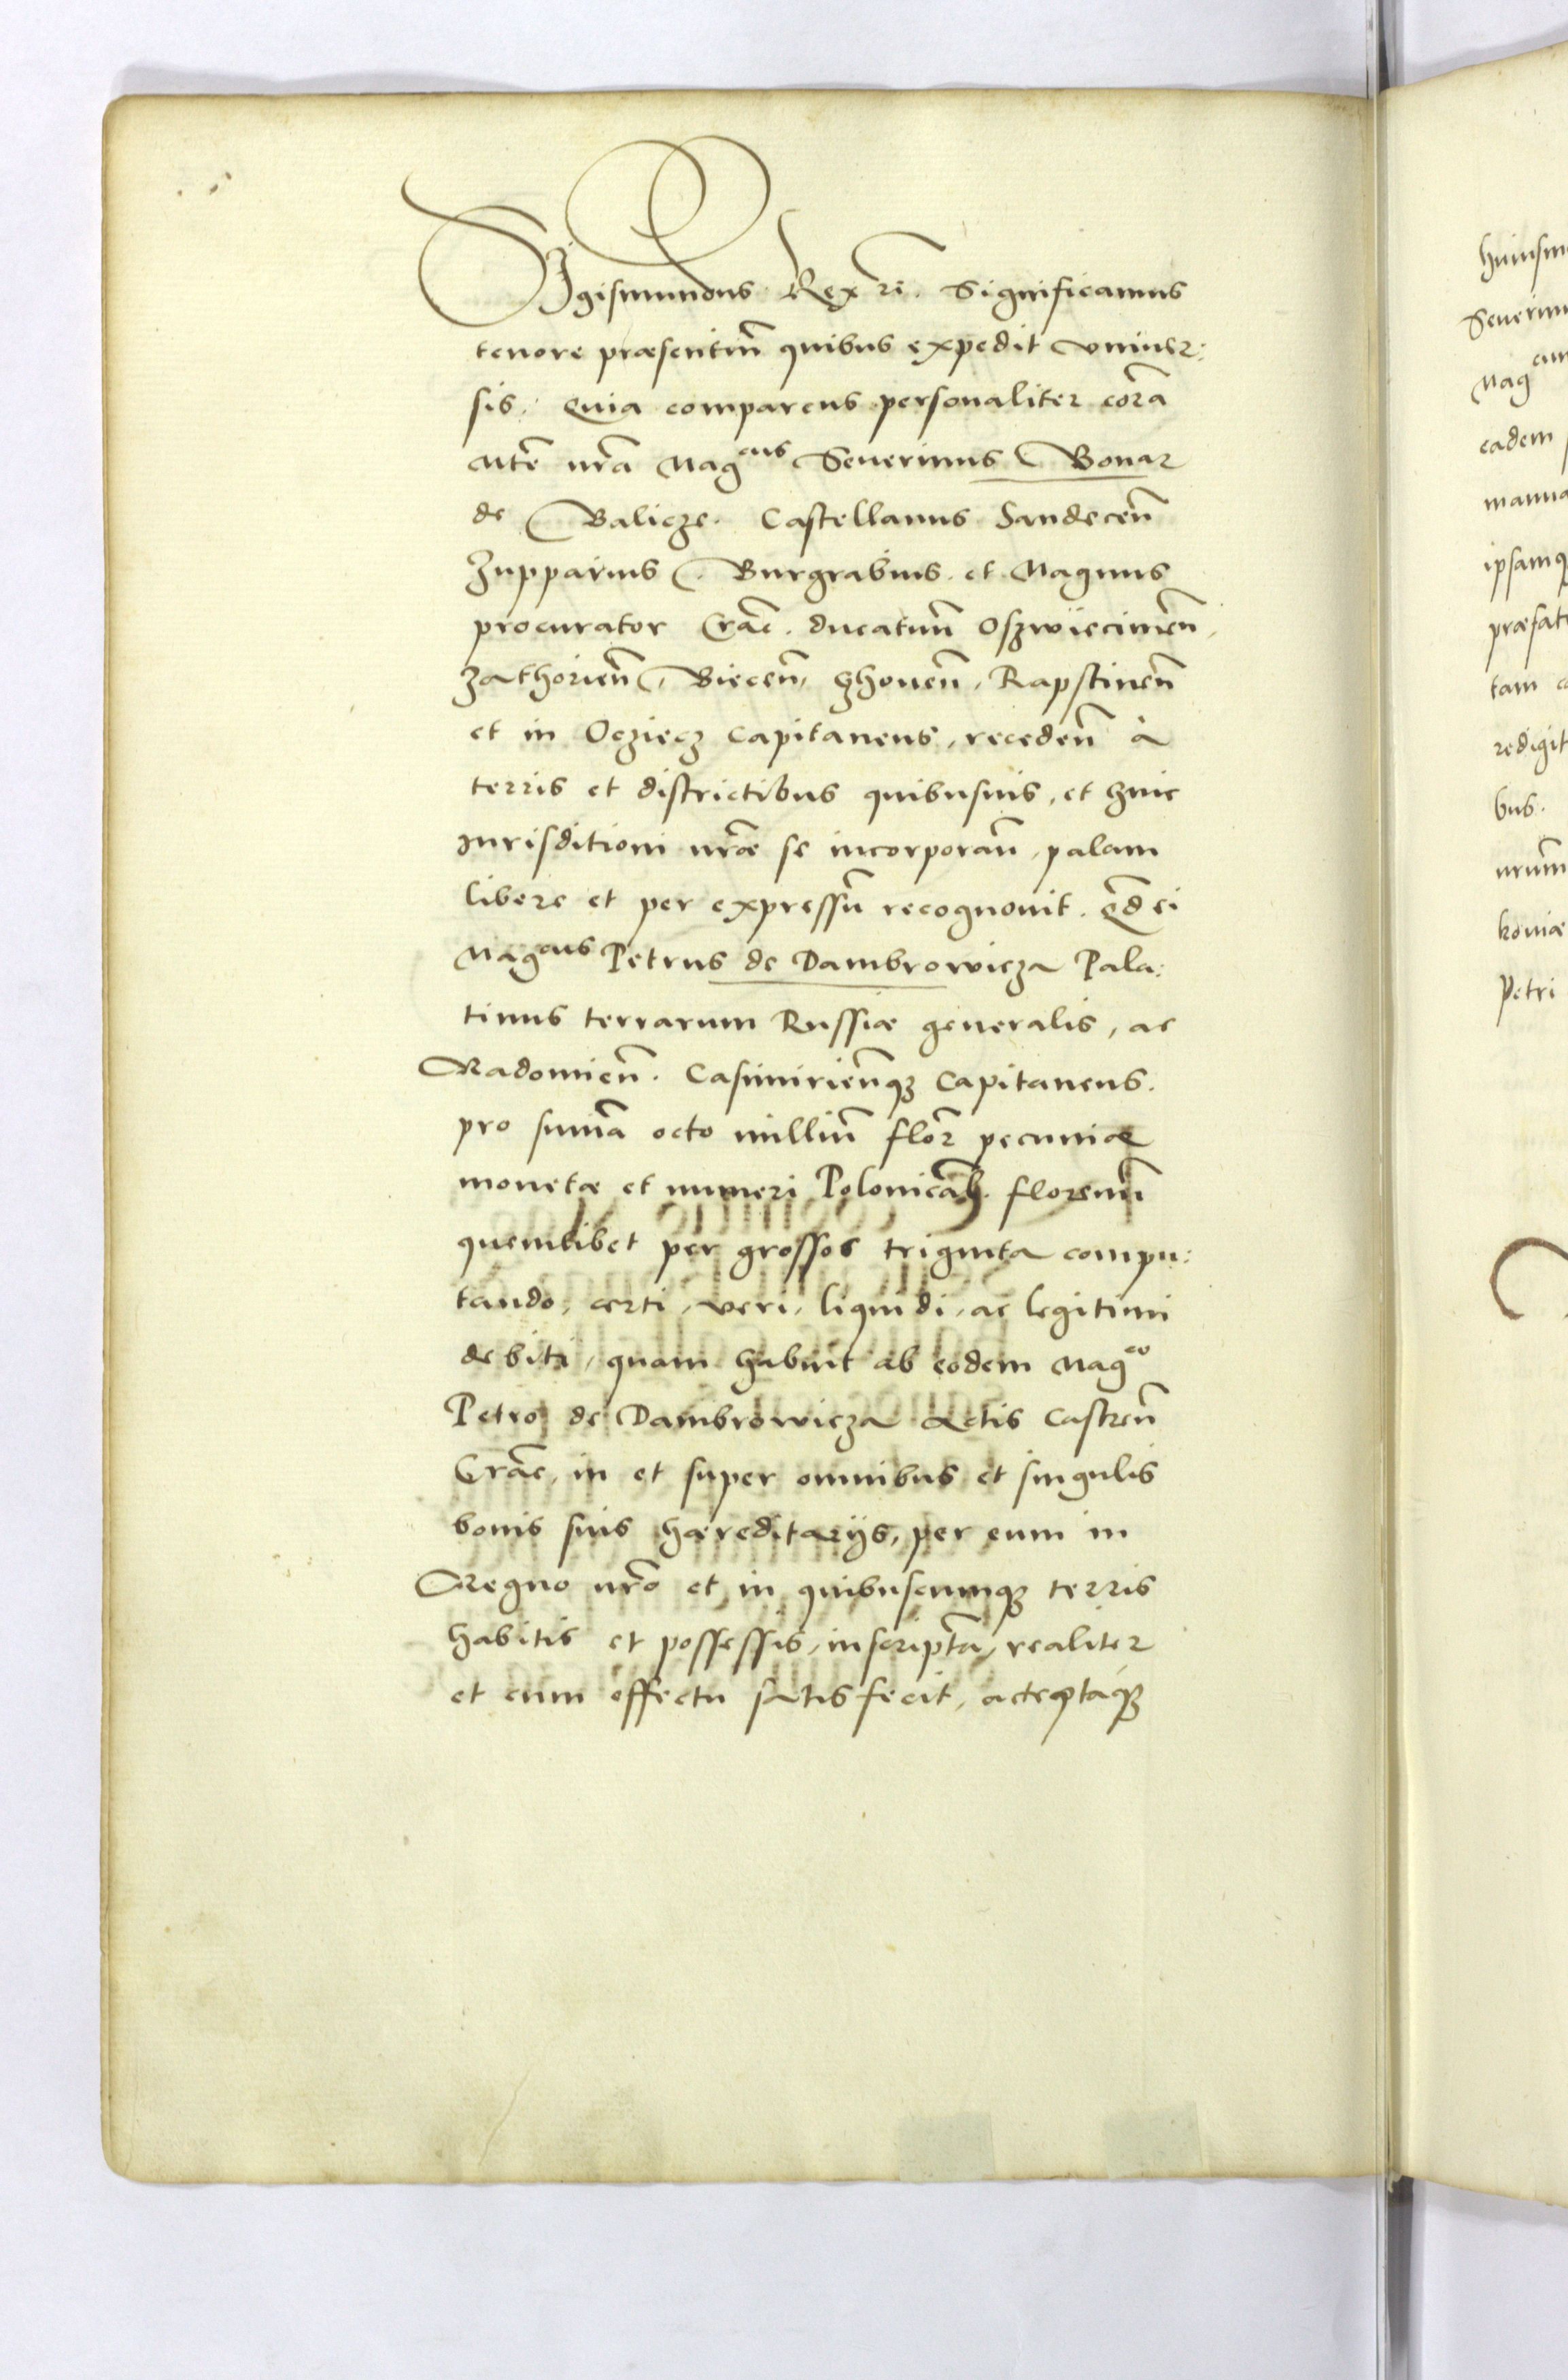 Sigismundus Rex etc. Significamus
tenore præsentiũ quibus expedit vniuer:
sis. Quia comparens personaliter corã
Mte nrã Magcus Seuerinus Bonar
de Balicze. Castellanus Sandeceñ
Zupparius. Burgrabius. et Magnus
procurator Crac̃. ducatuũ Oszwiecimeñ,
Zathorieñ, Bieceñ, Czchoueñ, Rapstineñ
et in Ocziecz Capitaneus, recedeñ à
terris et districtibus quibusuis, et huic
Jurisditioni nrãe se incorporañ, palam
libere et per expressũ recognouit. Qd̃ ei
Magcus Petrus de Dambrowicza Pala:
tinus terrarum Russiæ generalis, ac
Radomieñ. Casimirieñq₃ Capitaneus.
pro sum̃a octo milliũ flor̃ pecuniæ
monetæ et numeri Polonicãlis. florenũ
quemlibet per grossos triginta compu:
tando, certi, veri, liquidi, ac legitimi
debiti, quam habuit ab eodem Magco
Petro de Dambrowicza Actis Castreñ
Crac̃, in et super omnibus et singulis
bonis suis hæreditarijs, per eum in
Regno nrõ et in quibuscunq₃ terris
habitis et possessis, inscriptã, realiter
et cum effectu satisfecit, acteptaq₃
Seuerinu
Mag
eadem
manua
ipsamq
præfat
tam
redigit
bus.
nrum̃
koniæ
Petri